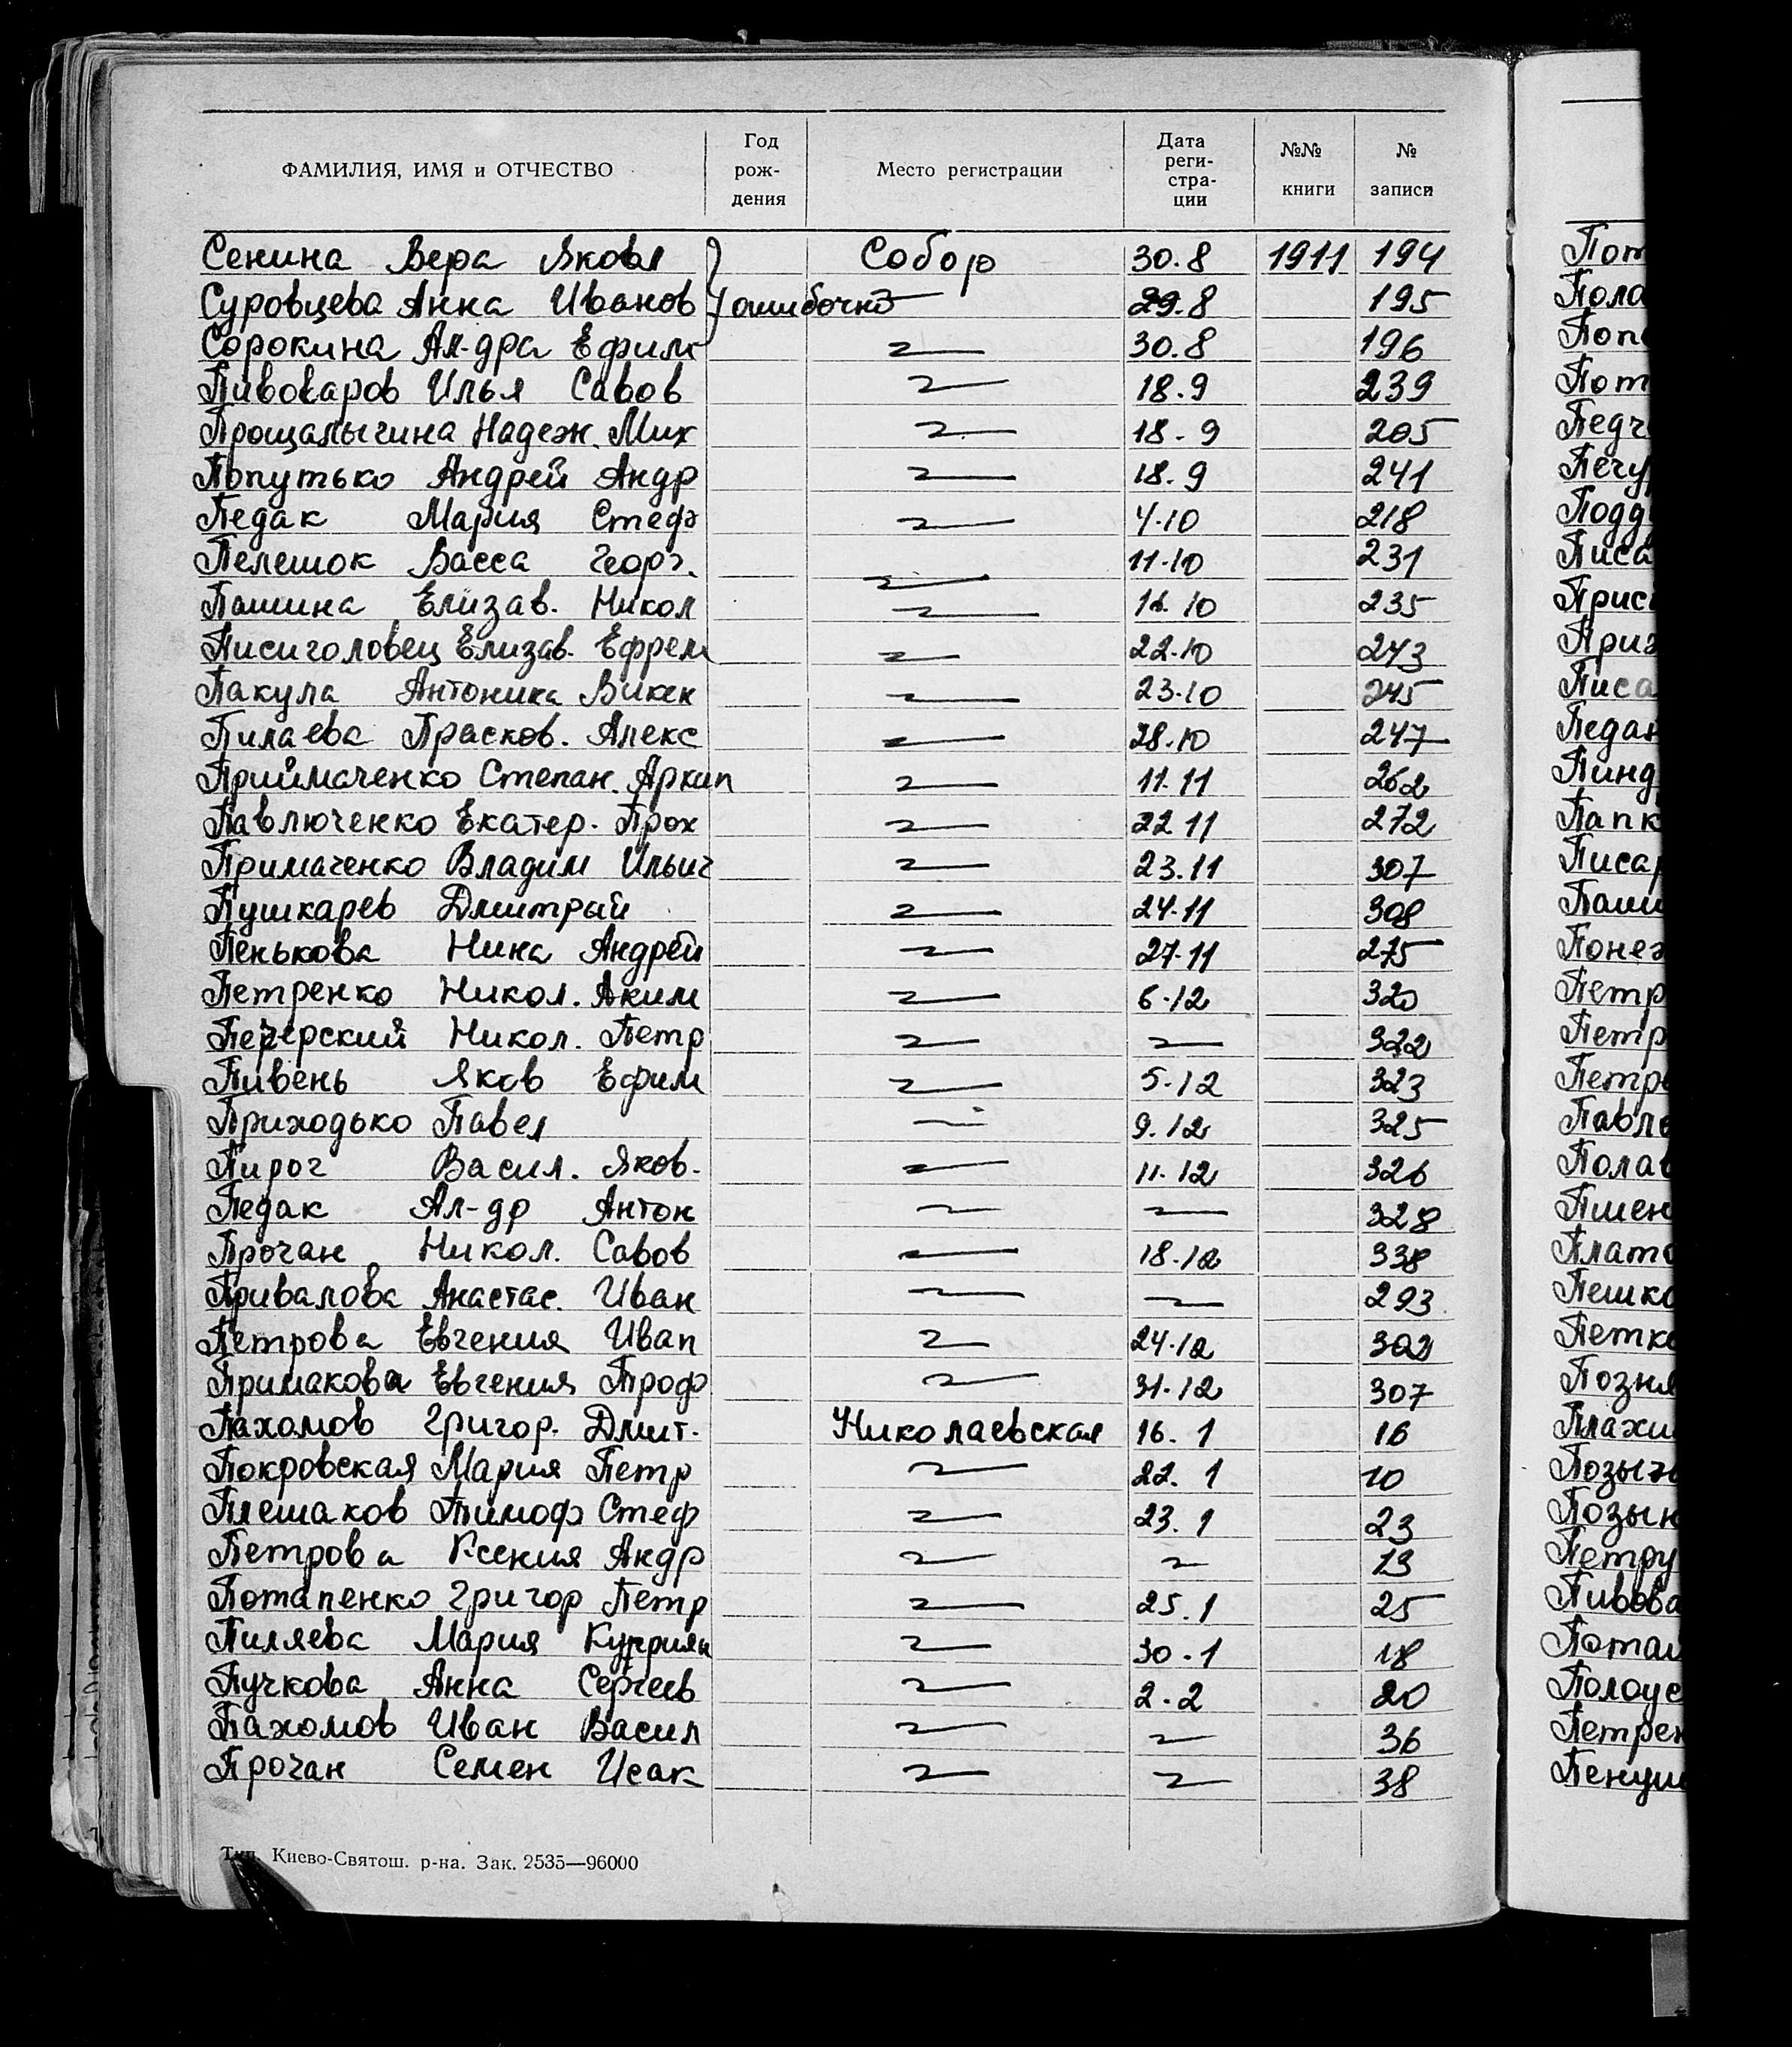 ФАМИЛИЯ, ИМЯ и ОТЧЕСТВО Год рож- дения Место регистрации Дата реги- стра- ции №№ книги № записи
Сенина Вера Яковл Собор 30.8 1911 194
Суровцева Анна Иванов ошибочно 29.8 195
Сорокина Ал-дра Ефим 30.8 196
Пивоваров Илья Савов 18.9 239
Прощалыгина Надеж. Мих 18.9 205
Попутько Андрей Андр 18.9 241
Педак Мария Стеф 4.10 218
Пелешок Васса Георг. 11.10 231
Пашина Елизав. Никол 16.10 235
Писиголовец Елизав. Ефрем 22.10 243
Пакула Антонина Викен 23.10 245
Пилаева Прасков. Алекс 28.10 247
Приймаченко Степан. Архип 11.11 262
Павлюченко Екатер. Прох 22 11 272
Примаченко Владим Ильич 23.11 307
Пушкарев Дмитрий 24.11 308
Пенькова Нина Андрей 27.11 275
Петренко Никол. Аким 6.12 320
Печерский Никол. Петр 322
Пивень Яков Ефим 5.12 323
Приходько Павел 9.12 325
Пирог Васил. Яков. 11.12 326
Педак Ал-др Антон 328
Прочан Никол. Савов 18.12 338
Привалова Анастас. Иван 293
Петрова Евгения Иван 24.12 302
Примакова Евгения Троф 31.12 307
Пахомов Григор. Дмит. Николаевская 16.1 16
Покровская Мария Петр 22.1 10
Плешаков Тимоф Стеф 23.1 23
Петрова Ксения Андр 13
Потапенко Григор Петр 25.1 25
Пиляева Мария Куприян 30.1 18
Пучкова Анна Сергеев 2.2 20
Пахомов Иван Васил 36
Прочан Семен Исак 38
Тип. Киево-Святош. р-на. Зак. 2535—96000